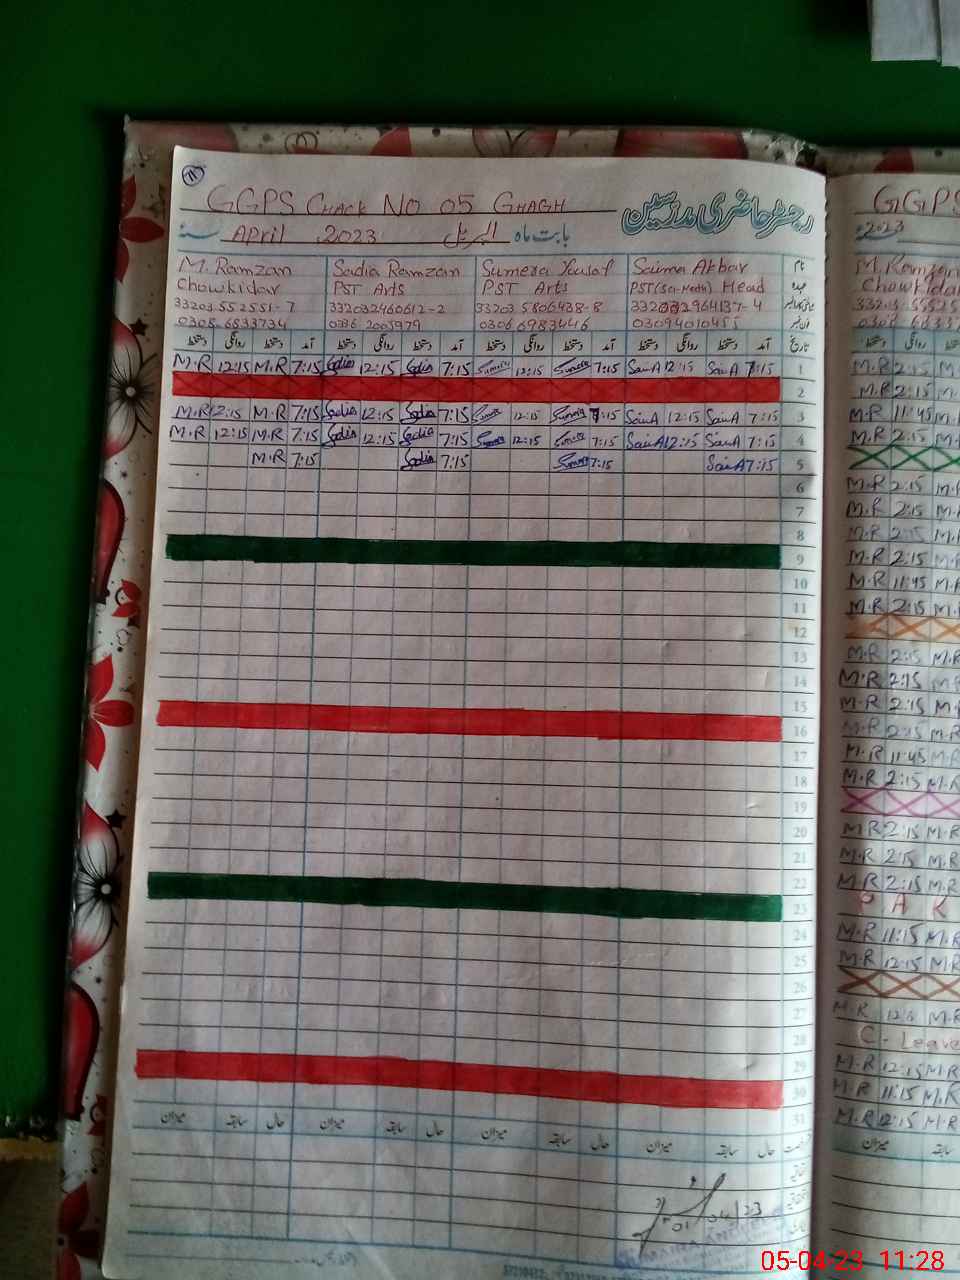 GGPS CHACK NO 05 GHAGH
رجسٹر حاضری مدرسین
April 2023 اپریل بابت ماہ
M. Ramzan Sadia Ramzan Sumera Yusaf Saima Akbar نام
Chowkidar PST Arts PST Arts PST (Sci-Math) Head عہدہ
33203 552551-7 332032460612-2 33203 5806438-8
0308-6833734 0336 2005979 0306 6983446 03094010455
دستخط روانگی دستخط آمد دستخط روانگی دستخط آمد دستخط روانگی دستخط آمد دستخط روانگی دستخط آمد تاریخ
M.R 12:15 M.R 7:15 Sadia 12:15 Sadia 7:15 Sumera 12:15 Sumera 7:15 SaimA 12:15 SaimA 7:15 1
2
M.R 12:15 M.R 7:15 Sadia 12:15 Sadia 7:15 Sumera 12:15 Sumera 7:15 SaimA 12:15 SaimA 7:15 3
M.R 12:15 M.R 7:15 Sadia 12:15 Sadia 7:15 Sumera 12:15 Sumera 7:15 SaimA 12:15 SaimA 7:15 4
M.R 7:15 Sadia 7:15 Sumera 7:15 SaimA 7:15 5
6
7
8
9
10
11
12
13
14
15
16
17
18
19
20
21
22
23
24
25
26
27
28
29
30
31
میزان سابقہ حال میزان سابقہ حال میزان سابقہ حال میزان سابقہ حال
01/04/23
GGPS
2023
M. Ramzan
Chowkidar
M.R 2:15
M.R 2:15
M.R 11:45
M.R 2:15
M.R 2:15
M.R 2:15
M.R 2:15
M.R 2:15
M.R 11:45
M.R 2:15
M.R 2:15 M.R
M.R 2:15
M.R 2:15
M.R 2:15 M.R
M.R 11:45 M.R
M.R 2:15 M.R
M.R 2:15 M.R
M.R 2:15 M.R
M.R 2:15 M.R
P A K
M.R 11:15 M.R
M.R 12:15 M.R
M.R M.R
C- Leave
M.R 12:15 M.R
M.R 11:15 M.R
M.R 12:15 M.R
میزان سابقہ
05-04-23 11:28